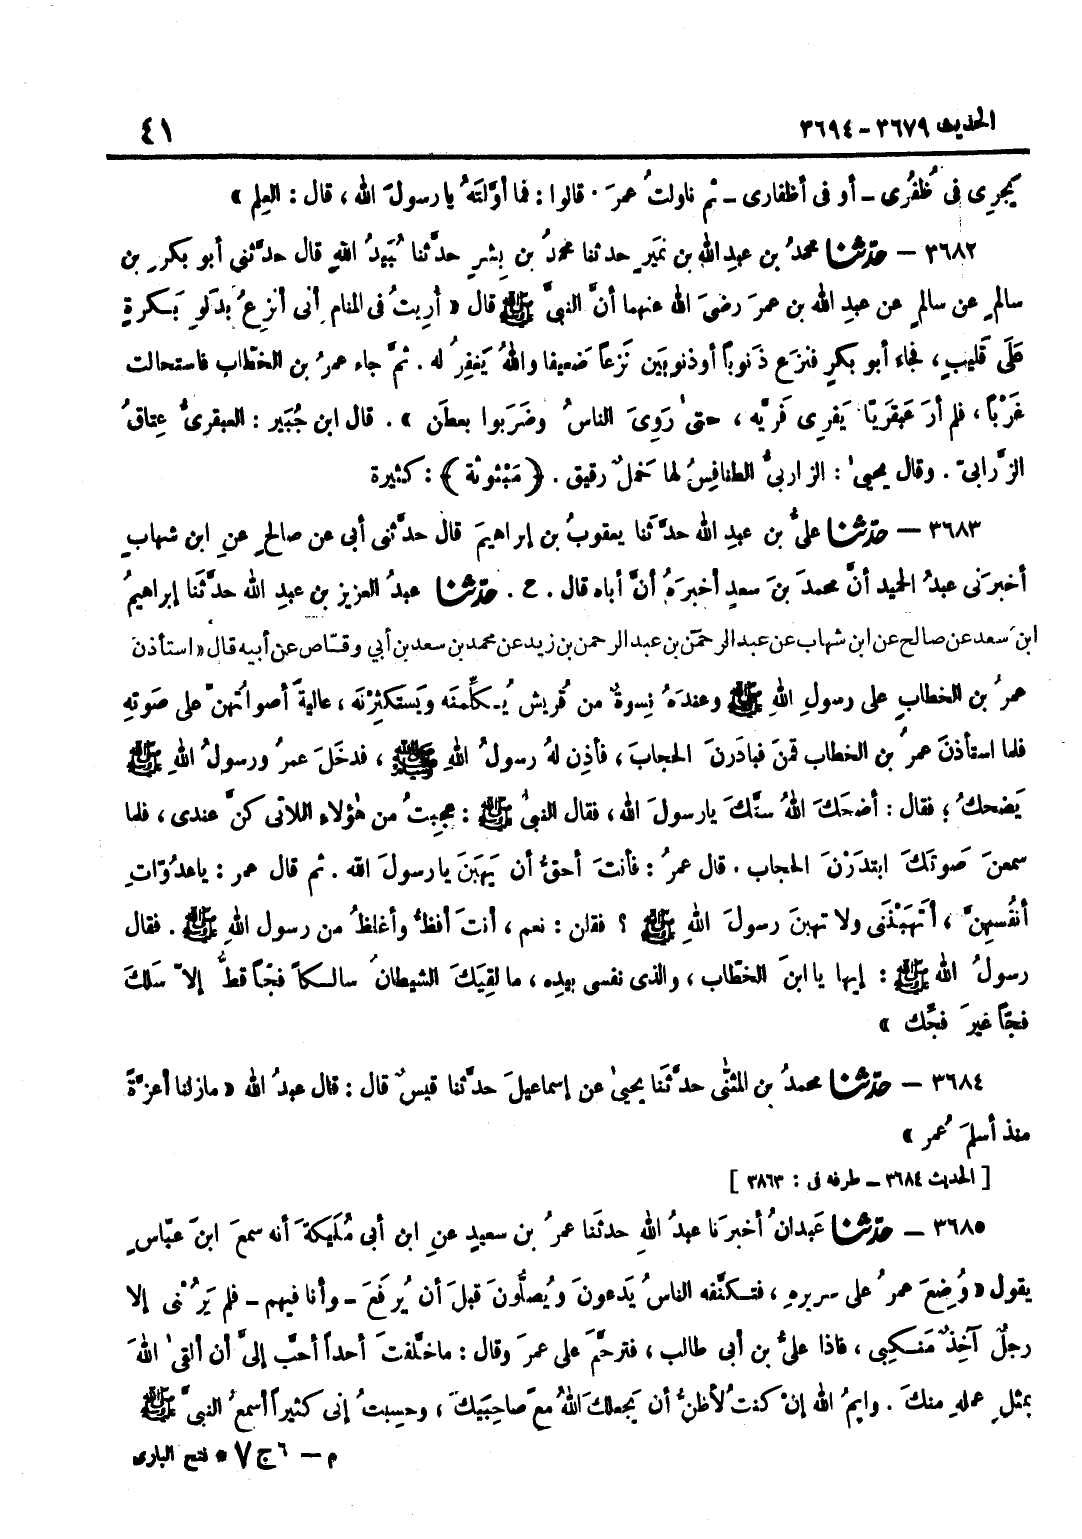 الحديث ٣٦٧٩ - ٣٦٩٤
٤١
يجرِى فى ظُفُرى ـ أو فى أظفارى ـ ثم ناولتُ عمرَ . قالوا : فما أوَّلتَهُ يا رسولَ الله ، قال : العِلم »
٣٦٨٢ — حدّثنا محمدُ بن عبدِ الله بن نُمَيرٍ حدثنا محمدُ بن بِشرٍ حدَّثنا عُبَيدُ اللهِ قال حدَّثنى أبو بكرِ بن
سالمٍ عن سالمٍ عن عبدِ الله بن عمرَ رضىَ الله عنهما أنَّ النبىَّ ﷺ قال « أُرِيتُ فى المنام أنى أنزِعُ بدَلوِ بَكرةٍ
عَلَى قَليبٍ ، فجاء أبو بكرٍ فنزَع ذَنوباً أو ذنوبَين نَزعاً ضَعيفا واللهُ يَغفِرُ له . ثمَّ جاء عمرُ بن الخطّاب فاستحالت
غَرْباً ، فلم أرَ عَبقَريّا يَفرِى فَرِيَّه ، حتىٰ رَوِىَ الناسُ وضَرَبوا بعطَن » . قال ابن جُبَير : العبقرىُّ عِتاقُ
الزَّرابىّ . وقال يحيىٰ : الزرابىُّ الطنافِسُ لها خَملٌ رقيق . ﴿ مَبْثوثة ﴾ : كثيرة
٣٦٨٣ — حدّثنا علىُّ بن عبدِ الله حدَّثَنا يعقوبُ بن إبراهيمَ قال حدَّثنى أبى عن صالحٍ عنِ ابن شهابٍ
أخبرَنى عبدُ الحميد أنَّ محمدَ بنَ سعدٍ أخبرَهُ أنَّ أباه قال . ح . حدّثنا عبدُ العزيز بن عبدِ الله حدَّثَنا إبراهيمُ
ابنُ سعد عن صالح عن ابن شهاب عن عبد الرحمن بن عبد الرحمن بن زيد عن محمد بن سعد بن أبي وقّاص عن أبيه قال « استأذن
عمرُ بن الخطابِ على رسولِ اللهِ ﷺ وعندَهُ نِسوةٌ من قُريش يُكلِّمنَه ويَستكثِرْنَه ، عاليةً أصواتُهنَّ على صَوتهِ
فلما استأذنَ عمرُ بن الخطاب قمنَ فبادَرنَ الحجابَ ، فأذِن لهُ رسولُ اللهِ ﷺ ، فدخَلَ عمرُ ورسولُ اللهِ ﷺ
يَضحكُ ؛ فقال : أضحَكَ اللهُ سِنَّكَ يارسولَ الله ، فقال النبىُّ ﷺ : عجِبتُ من هٰؤلاءِ اللاتى كنَّ عندى ، فلما
سمعنَ صَوتَكَ ابتدَرْنَ الحجاب . قال عمرُ : فأنتَ أحقُّ أن يَهَبنَ يا رسولَ الله . ثم قال عمر : ياعدُوّاتِ
أنفُسِهنَّ ، أتَهَبْنَنى ولا تهبنَ رسولَ اللهِ ﷺ ؟ فقلن : نعم ، أنتَ أفظُّ وأغلظُ من رسول اللهِ ﷺ . فقال
رسولُ الله ﷺ : إيها يا ابنَ الخطّاب ، والذى نفسى بيدِه ، ما لقِيَكَ الشيطانُ سالكاً فجّاً قطُّ إلاّ سَلكَ
فجّاً غيرَ فجِّك »
٣٦٨٤ — حدّثنا محمدُ بن المثنَّى حدَّثَنا يحيىٰ عن إسماعيلَ حدَّثنا قيسٌ قال : قال عبدُ الله « مازلنا أعزَّةً
منذ أسلمَ عُمر »
[ الحديث ٣٦٨٤ ـ طرفه فى : ٣٨٦٣ ]
٣٦٨٥ — حدّثنا عَبدانُ أخبرَنا عبدُ اللهِ حدثَنا عمرُ بن سعيدٍ عنِ ابن أبى مُلَيكةَ أنه سمعَ ابنَ عبّاسٍ
يقول « وُضِعَ عمرُ على سريرهِ ، فتكنَّفه الناسُ يَدعونَ ويُصلُّونَ قبلَ أن يُرفَعَ ـ وأنا فيهم ـ فلم يَرُعْنى إلا
رجلٌ آخِذٌ مَنكِبى ، فاذا علىُّ بن أبى طالب ، فترحَّمَ على عمرَ وقال : ماخلَّفتَ أحداً أحبَّ إلىَّ أن ألقىٰ اللهَ
بمثلِ عملهِ منكَ . وايمُ الله إنْ كنتُ لأظنُّ أن يَجعلكَ اللهُ معَ صاحِبَيكَ ، وحسِبتُ إنى كثيراً أسمعُ النبىَّ ﷺ
م — ٦ ج ٧ * فتح البارى